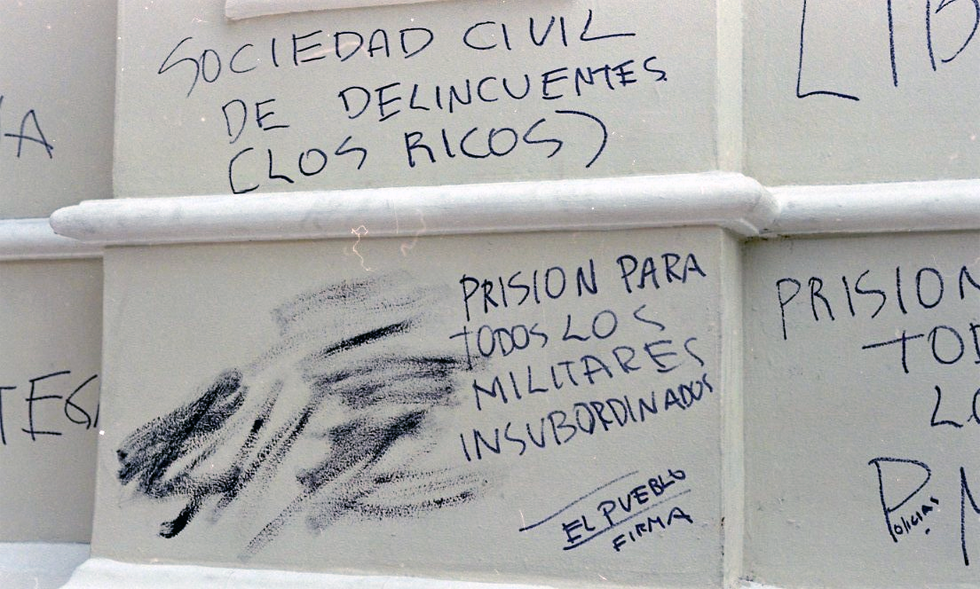 SOCIEDAD CIVIL
DE DELINCUENTES
(LOS RICOS)
PRISION PARA
TODOS LOS
MILITARES
INSUBORDINADOS
EL PUEBLO
FIRMA
PRISION
POLICIAS